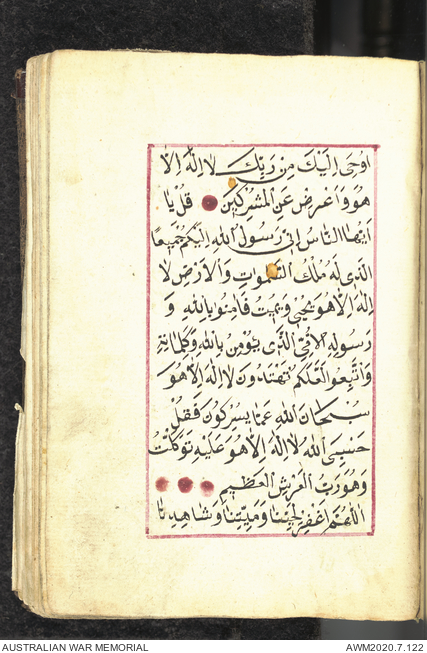 اُوحِىَ اِلَيْكَ مِنْ رَبِّكَ لَا اِلٰهَ اِلَّا
هُوَ وَاَعْرِضْ عَنِ الْمُشْرِكِينَ قُلْ يَا
اَيُّهَا النَّاسُ اِنِّى رَسُولُ اللهِ اِلَيْكُمْ جَمِيعًا
الَّذِى لَهُ مُلْكُ السَّمٰوَاتِ وَالْاَرْضِ لَا
اِلٰهَ اِلَّا هُوَ يُحْيِى وَيُمِيتُ فَاٰمِنُوا بِاللهِ وَ
رَسُولِهِ الْاُمِّىِّ الَّذِى يُؤْمِنُ بِاللهِ وَكَلِمَاتِهِ
وَاتَّبِعُوا لَعَلَّكُمْ تَهْتَدُونَ لَا اِلٰهَ اِلَّا هُوَ
سُبْحَانَ اللهِ عَمَّا يُشْرِكُونَ فَقُلْ
حَسْبِىَ اللهُ لَا اِلٰهَ اِلَّا هُوَ عَلَيْهِ تَوَكَّلْتُ
وَهُوَ رَبُّ الْعَرْشِ الْعَظِيمِ
اَللّٰهُمَّ اغْفِرْ لِحَيِّنَا وَمَيِّتِنَا وَشَاهِدِنَا
AUSTRALIAN WAR MEMORIAL
AWM2020.7.122